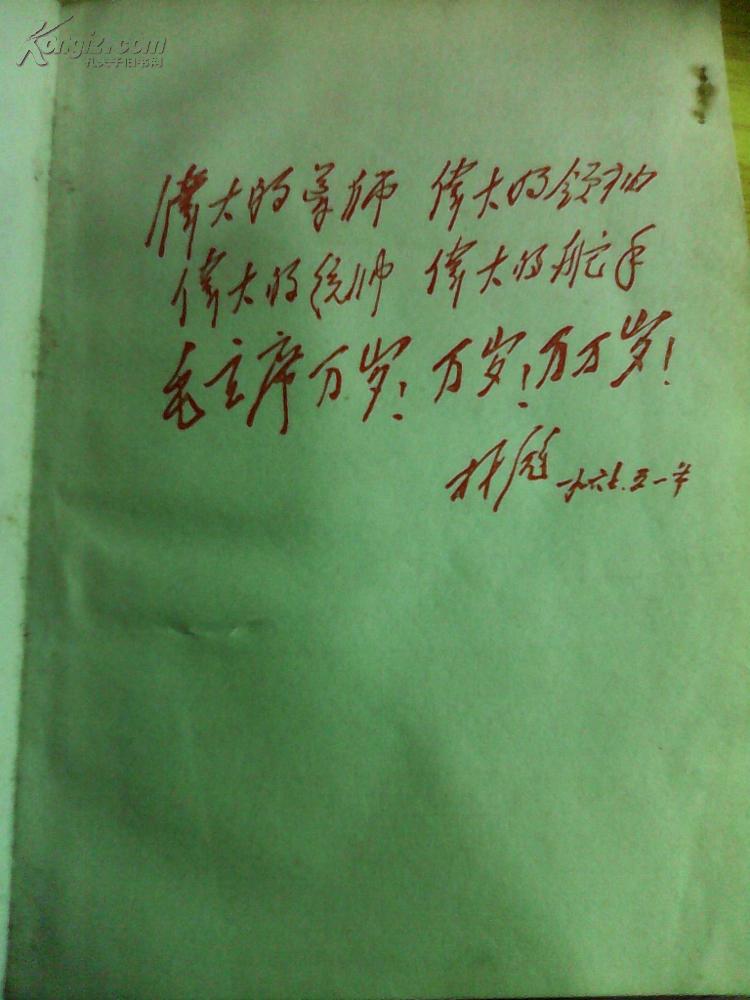 Kongfz.com
孔夫子旧书网
偉大的导师 偉大的领袖
偉大的统帅 偉大的舵手
毛主席万岁！万岁！万万岁！
林彪 一九六七.五一节